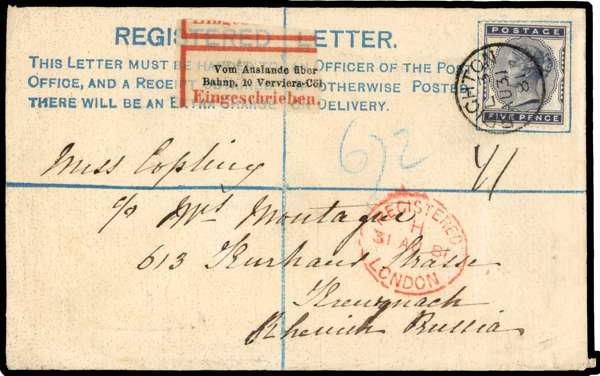 REGISTERED LETTER.
THIS LETTER MUST BE OFFICER OF THE POST
OFFICE, AND A RECEIPT OTHERWISE POSTED
THERE WILL BE AN EXTRA CHARGE ON DELIVERY.
Vom Auslande über
Bahnp. 10 Verviers-Cöl
Eingeschrieben.
POSTAGE
FIVE PENCE
672
Miss Copling
c/o Mrs Montague
613 Kurhaus Strasse
Kreuznach
Rhenish Prussia
REGISTERED
H
31 AU 8
LONDON